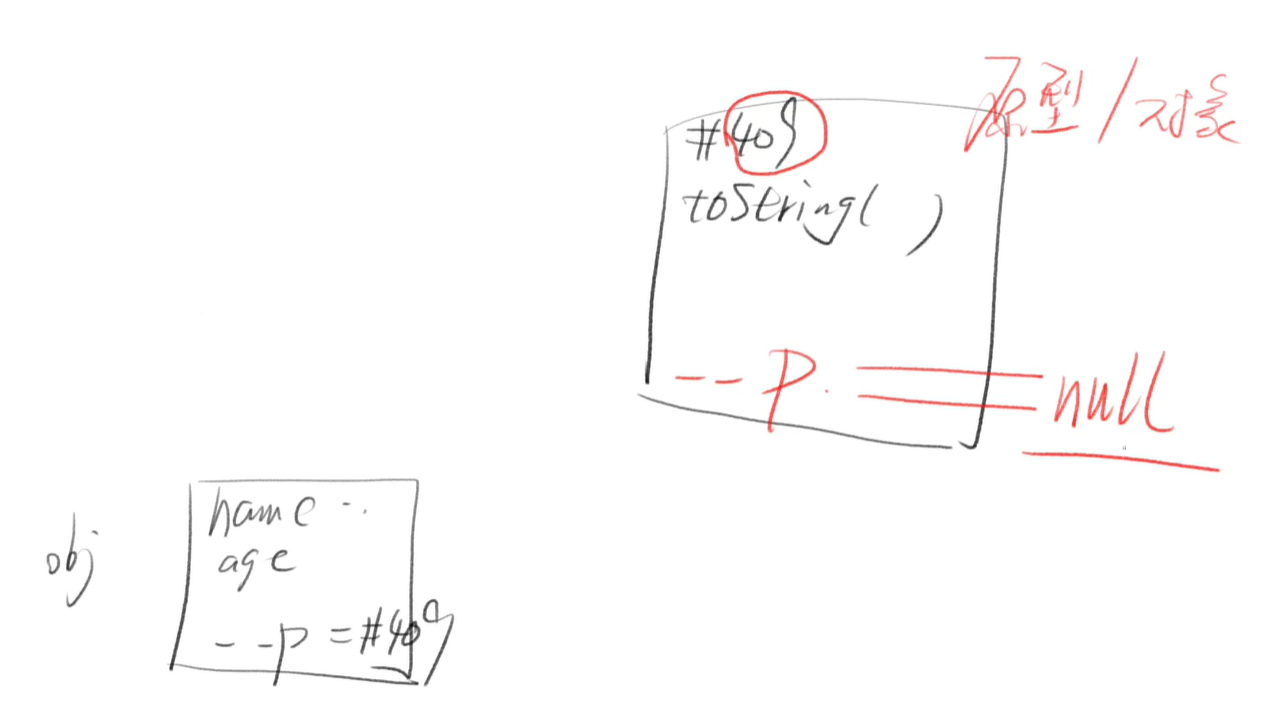 原型/对象
#409
toString( )
--P. = null
obj
name ..
age
--p = #409